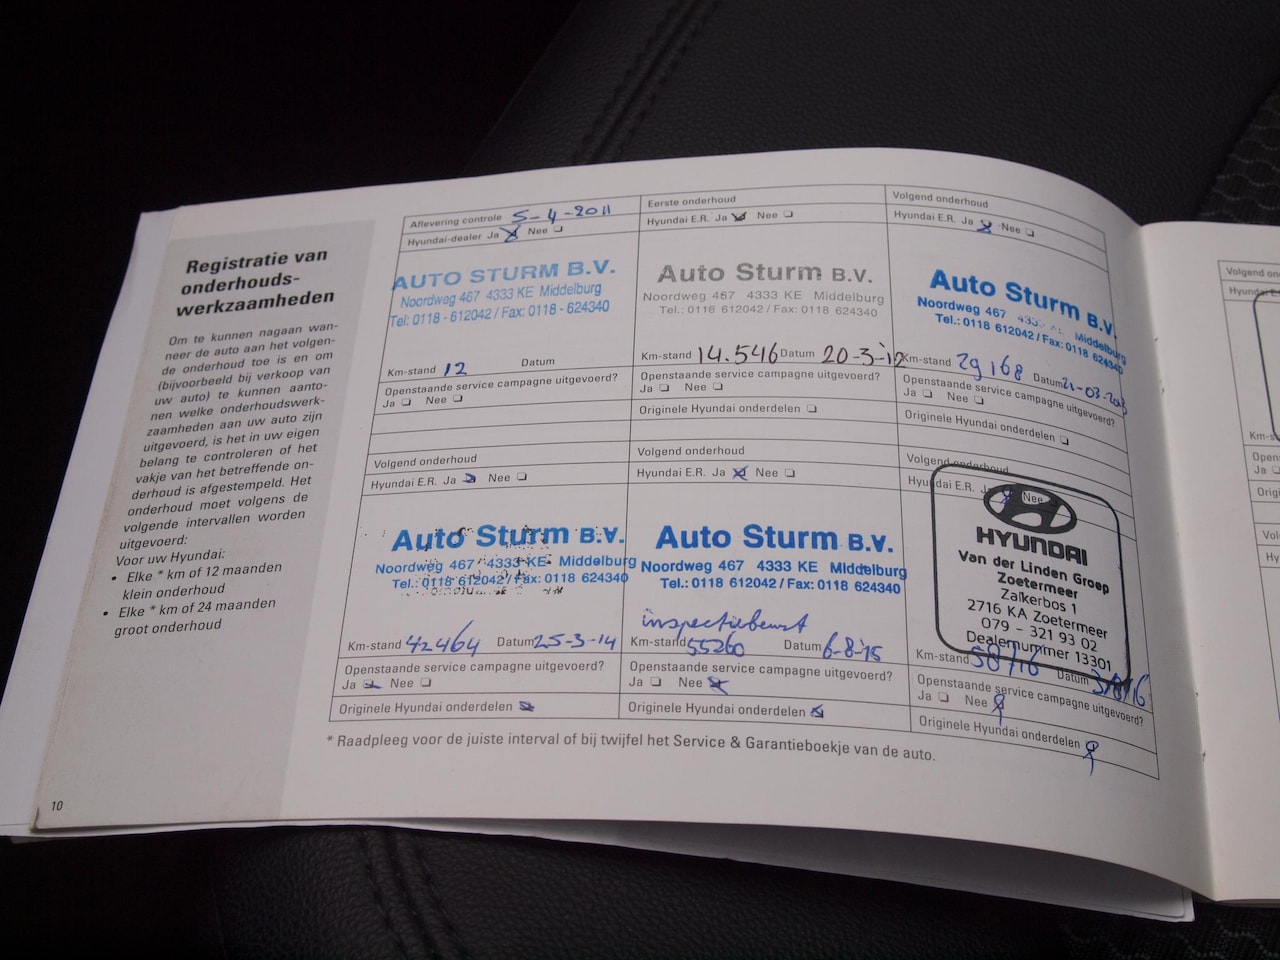 Registratie van
onderhouds-
werkzaamheden
Om te kunnen nagaan wan-
neer de auto aan het volgen-
de onderhoud toe is en om
(bijvoorbeeld bij verkoop van
uw auto) te kunnen aanto-
nen welke onderhoudswerk-
zaamheden aan uw auto zijn
uitgevoerd, is het in uw eigen
belang te controleren of het
vakje van het betreffende on-
derhoud is afgestempeld. Het
onderhoud moet volgens de
volgende intervallen worden
uitgevoerd:
Voor uw Hyundai:
• Elke * km of 12 maanden
klein onderhoud
• Elke * km of 24 maanden
groot onderhoud
10
Aflevering controle 5-4-2011
Hyundai-dealer Ja Nee
AUTO STURM B.V.
Noordweg 467 4333 KE Middelburg
Tel: 0118 - 612042 / Fax: 0118 - 624340
Km-stand 12 Datum
Openstaande service campagne uitgevoerd?
Ja Nee
Eerste onderhoud
Hyundai E.R. Ja Nee
Auto Sturm B.V.
Noordweg 467 4333 KE Middelburg
Tel.: 0118 612042 / Fax: 0118 624340
Km-stand 14.546 Datum 20-3-'12
Openstaande service campagne uitgevoerd?
Ja Nee
Originele Hyundai onderdelen
Volgend onderhoud
Hyundai E.R. Ja Nee
Auto Sturm B.V.
Noordweg 467 4333 Middelburg
Tel.: 0118 612042 / Fax: 0118 624340
Km-stand 29168 Datum 21-03-2013
Openstaande service campagne uitgevoerd?
Ja Nee
Originele Hyundai onderdelen
Volgend onderhoud
Hyundai E.R. Ja Nee
Auto Sturm B.V.
Noordweg 467 4333 KE Middelburg
Tel.: 0118 612042 / Fax: 0118 624340
Km-stand 42464 Datum 25-3-14
Openstaande service campagne uitgevoerd?
Ja Nee
Originele Hyundai onderdelen
Volgend onderhoud
Hyundai E.R. Ja Nee
Auto Sturm B.V.
Noordweg 467 4333 KE Middelburg
Tel.: 0118 612042 / Fax: 0118 624340
inspectiebeurt
Km-stand 55260 Datum 6-8-'15
Openstaande service campagne uitgevoerd?
Ja Nee
Originele Hyundai onderdelen
Volgend onderhoud
Hyundai E.R. Ja Nee
HYUNDAI
Van der Linden Groep
Zoetermeer
Zalkerbos 1
2716 KA Zoetermeer
079 - 321 93 02
Dealernummer 13301
Km-stand 58716 Datum
Openstaande service campagne uitgevoerd?
Ja Nee
Originele Hyundai onderdelen
* Raadpleeg voor de juiste interval of bij twijfel het Service & Garantieboekje van de auto.
Volgend
Hyundai E.
Km-s
Open
Ja
Origi
Vol
Hy